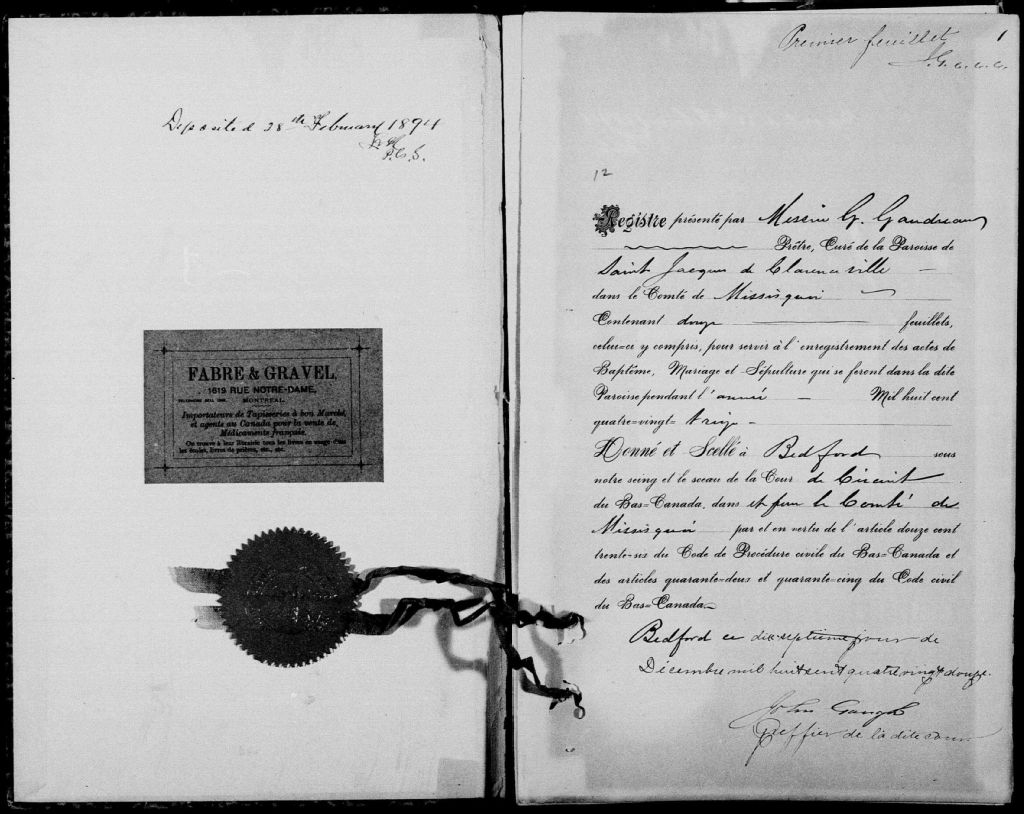 Deposited 28th February 1894
P.C.S.
FABRE & GRAVEL,
1619 RUE NOTRE-DAME,
MONTREAL.
Importateurs de Tapisseries à bon Marché,
et agents au Canada pour la vente de
Médicaments français.
On trouve à leur librairie tous les livres en usage dans
les écoles, livres de prières, etc., etc.
Premier feuillet 1
J.G. c.c.c.
12
Registre présenté par Messire G. Gaudreau
Prêtre, Curé de la Paroisse de
Saint Jacques de Clarenceville
dans le Comté de Missisquoi
Contenant douze feuillets,
celui=ci y compris, pour servir à l'enregistrement des actes de
Baptême, Mariage et Sépulture qui se feront dans la dite
Paroisse pendant l'année Mil huit cent
quatre=vingt= treize
Donné et Scellé à Bedford sous
notre seing et le sceau de la Cour de Circuit
du Bas=Canada, dans et pour le Comté de
Missisquoi par et en vertu de l'article douze cent
trente=six du Code de Procédure civile du Bas=Canada et
des articles quarante=deux et quarante=cinq du Code civil
du Bas=Canada
Bedford ce dix-septième jour de
Décembre mil huit cent quatre vingt douze.
John Gough
Greffier de la dite cour